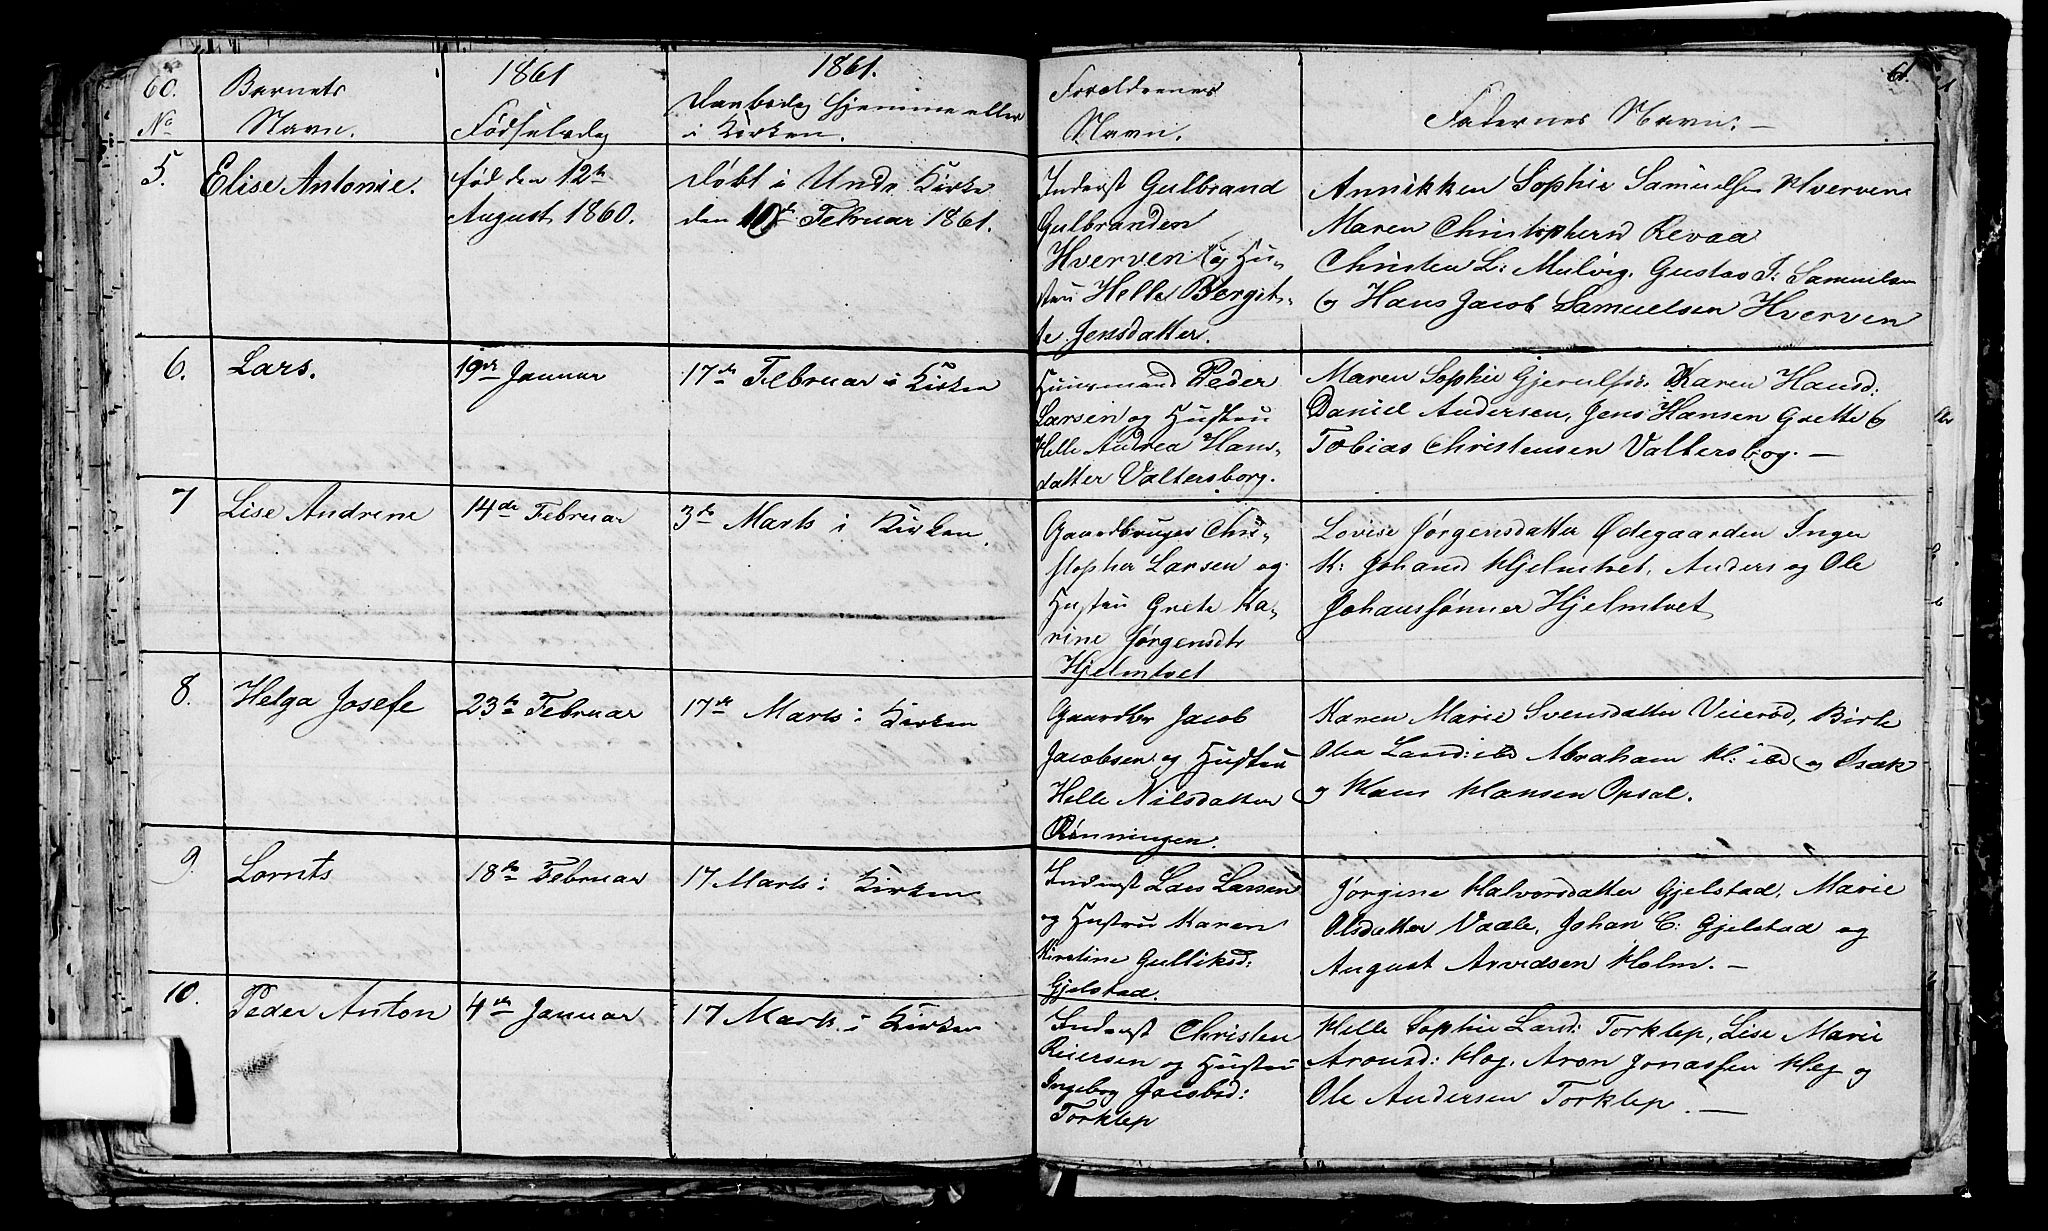 60. Barnets 1861 1861.
No Navn. Fødselsdag Daabsdag hjemme eller
i Kirken.
5. Elise Antonie. fød den 12te Døbt i Undr. Kirke
August 1860. den 10de Februar 1861.
6. Lars. 19de Januar 17de Februar i Kirken
7 Lise Andrene 14de Februar 3de Marts i Kirken.
8. Helga Josefe 23de Februar 17de Marts i Kirken
9. Lornts 18de Februar 17 Marts i Kirken
10. Peder Anton 4de Januar 17 Marts i Kirken
61.
Forældrenes
Navn.
Fadernes Navn: —
Inderst Gulbrand
Gulbrandsen
Hverven og Hu-
stru Helle Bergit-
te Jensdatter.
Annikken Sophie Samuelsen Hverven
Maren Christophersd Revaa
Christen L: Mulvig, Gustav J: Samuelsen
og Hans Jacob Samuelsen Hverven
Huusmand Peder
Larsen og Hustru
Helle Andrea Hans-
datter Valtersborg.
Maren Sophie Gjerulfsd. Karen Hansd.
Daniel Andersen, Jens Hansen Grette og
Tobias Christensen Valtersbog. —
Gaardbruger Chri-
stopher Larsen og
Hustru Grete Ka-
rine Jørgensdtr
Hjelmtvet
Lovise Jørgensdatter Ødegaarden Inger
K: Johansd Hjelmtvet, Anders og Ole
Johanssønner Hjelmtvet
Gaardbr Jacob
Jacobsen og Hustru
Helle Nilsdatter
Rønningen.
Karen Marie Svensdatter Vierød, Birte
Olea Larsd: ibd Abraham H: ibd og Isak
og Hans Hansen Opsal.
Inderst Lars Larsen
og Hustru Karen
Kirstine Gulliksd:
Gjelstad.
Jørgine Halvorsdatter Gjelstad, Marie
Olsdatter Vaale, Johan C: Gjelstad og
August Arvedsen Holm. —
Inderst Christen
Reiersen og Hustru
Ingebog Jacobsd:
Torklep
Helle Sophie Larsd: Torklep, Lise Marie
Aronsd: Høg, Aron Jonassen Høg og
Ole Andersen Torklep. —